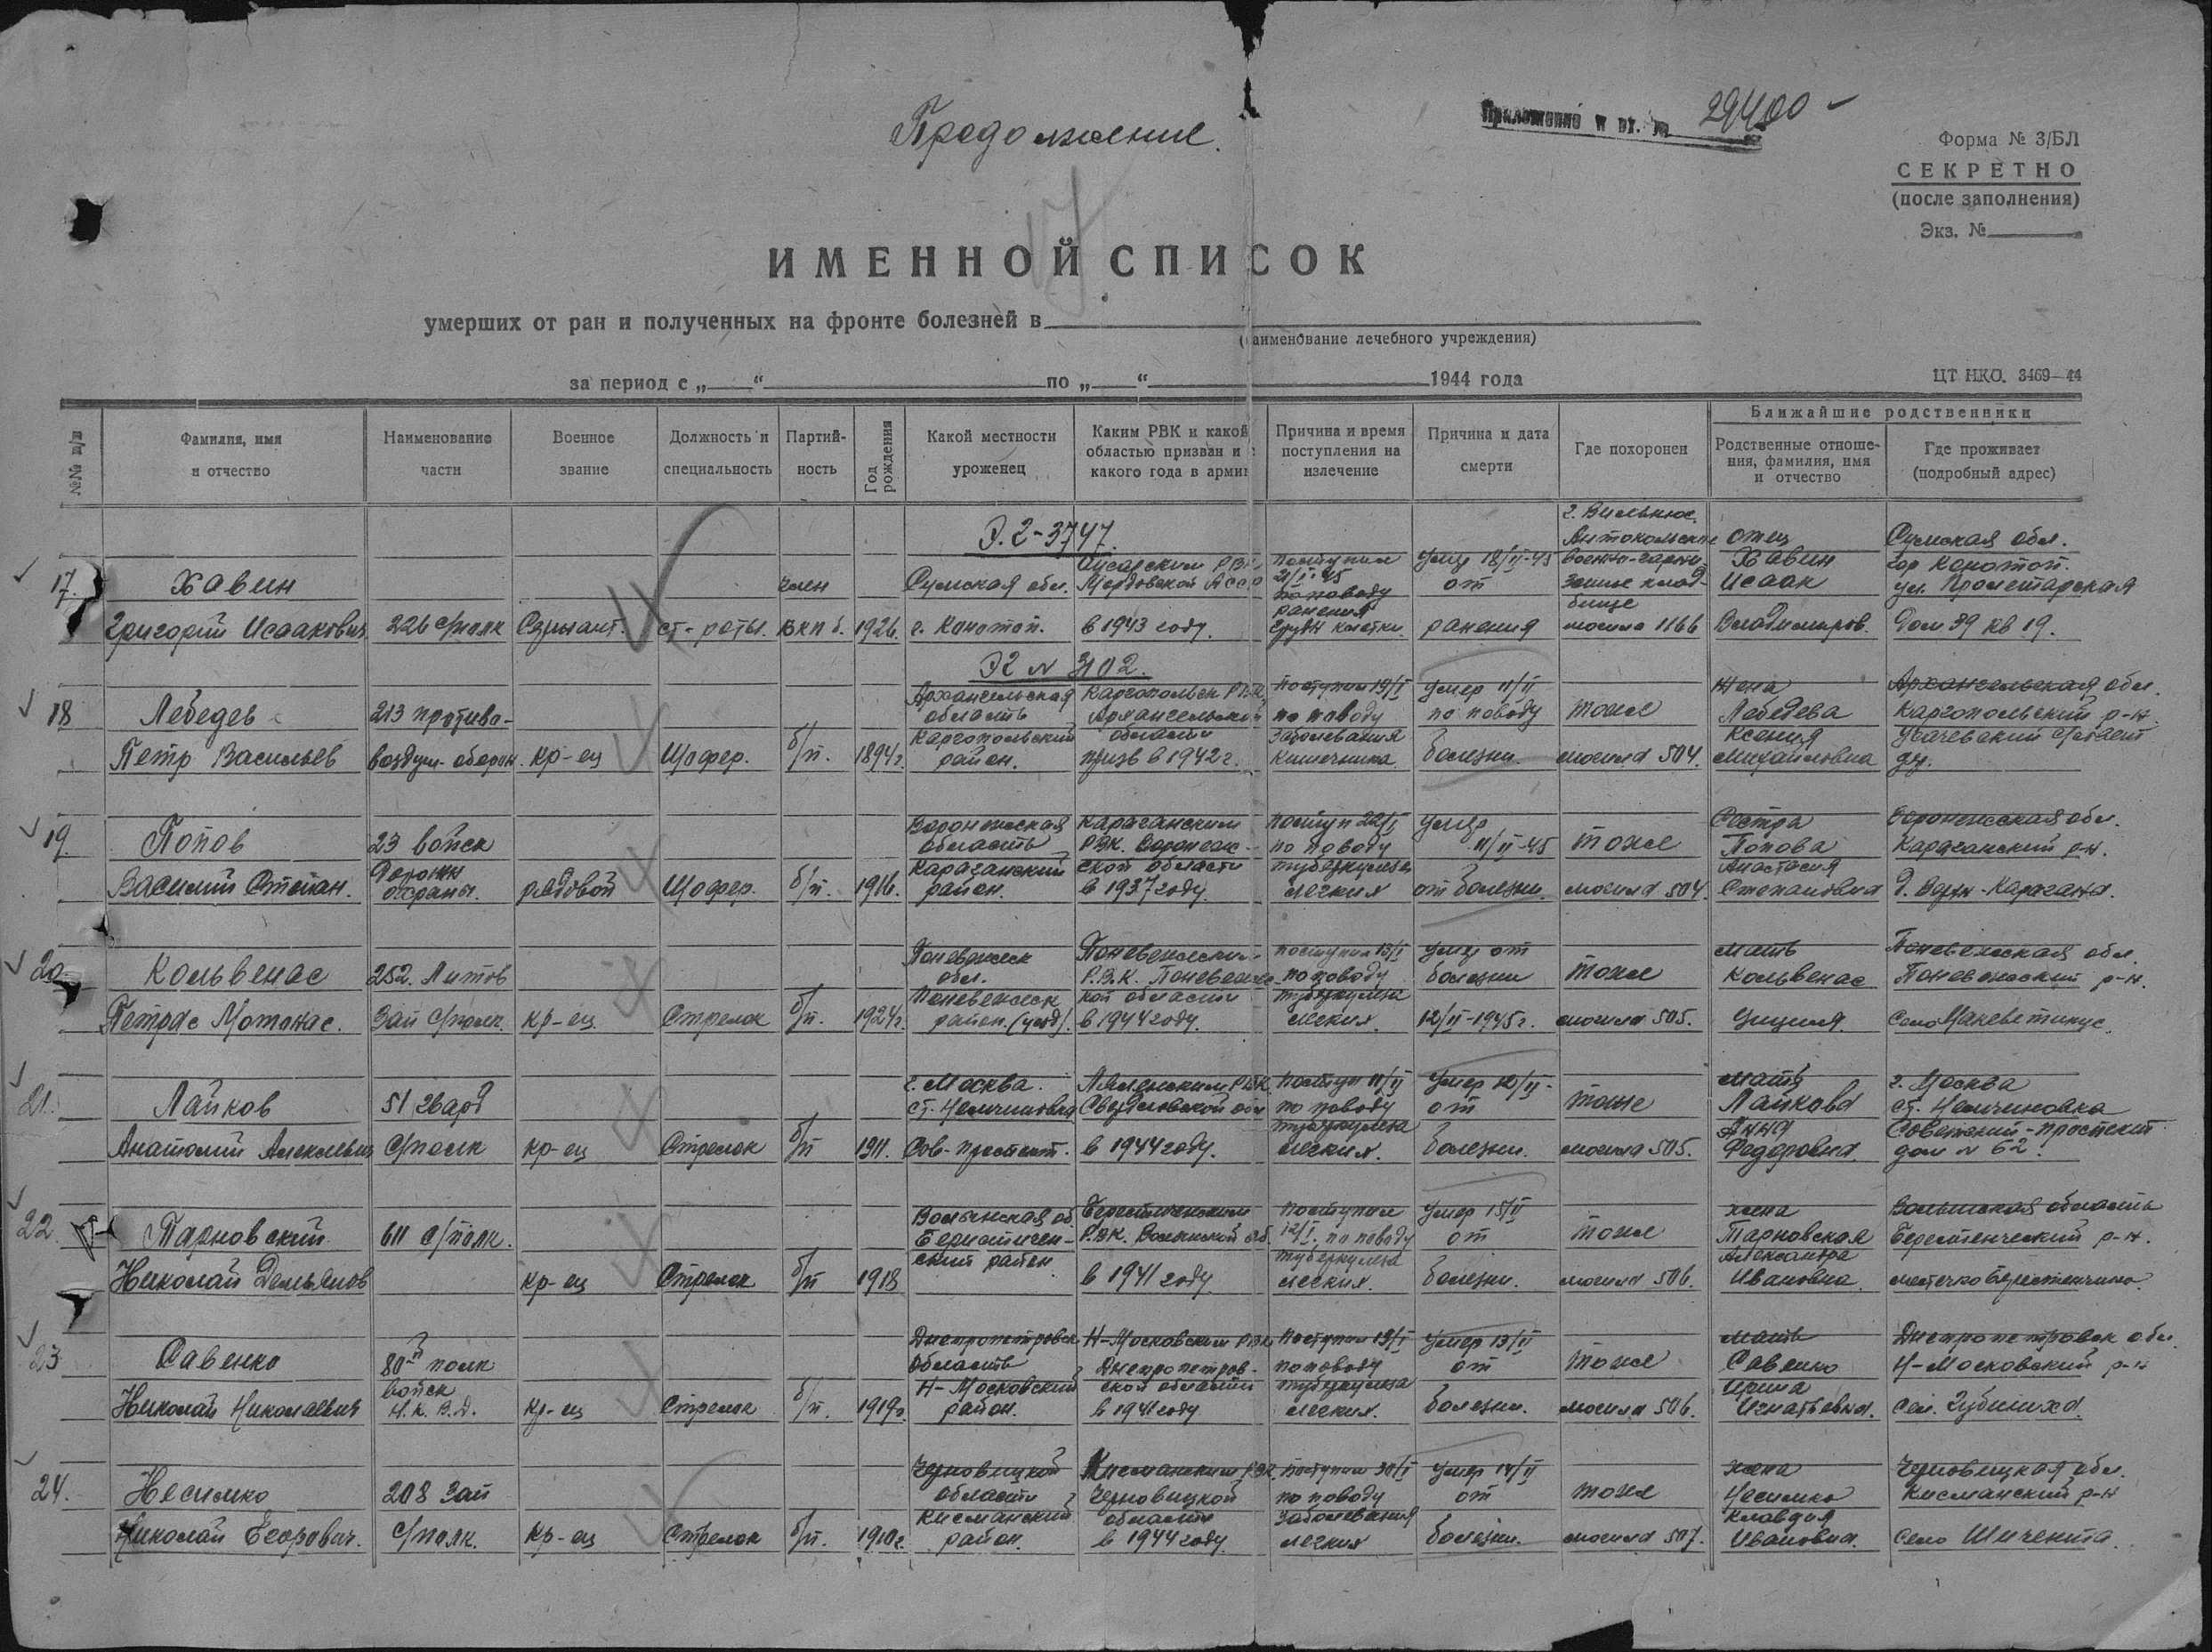 Продолжение.
Приложение к вх. № 29400
Форма № 3/БЛ
СЕКРЕТНО
(после заполнения)
Экз. №
17
ИМЕННОЙ СПИСОК
умерших от ран и полученных на фронте болезней в
(наименование лечебного учреждения)
за период с „ “ по „ “ 1944 года
ЦТ НКО. 3469—44
№№ п/п
Фамилия, имя и отчество
Наименование части
Военное звание
Должность и специальность
Партий-ность
Год рождения
Какой местности уроженец
Каким РВК и какой областью призван и с какого года в армии
Причина и время поступления на излечение
Причина и дата смерти
Где похоронен
Ближайшие родственники
Родственные отноше-ния, фамилия, имя и отчество
Где проживает (подробный адрес)
Э.2-3747.
17. Хавин Григорий Исаакович 226 с/полк Сержант. ст-роты. член ВКП б. 1926. Сумская обл. г. Конотоп. РВК Мордовской АССР в 1943 году. поступил 21/I-45 по поводу ранения грудн клетки. умер 18/II-45 от ранения г. Вильнюс. Антокольское военно-гарни-зонное клад-бище могила 1166 отец Хавин Исаак Владимиров. Сумская обл. гор Конотоп. ул. Пролетарская дом 39 кв 19.
Э2 № 3102.
18 Лебедев Петр Васильев 213 противо-воздуш-оборон. кр-ец Шофер. б/п. 1894г. Архангельская область Каргопольский район. Каргопольск РВК Архангельской области призв в 1942г. Поступил 19/I по поводу заболевания кишечника. умер 11/II по поводу болезни. тоже могила 504. жена Лебедева Ксения Михайловна Архангельская обл. Каргопольский р-н.
19. Попов Василий Степан. 23 войск дорожн охраны. рядовой Шофер. б/п. 1916. Воронежская область Карачанский район. Карачанским РВК. Воронеж-ской области в 1937 году. поступ 22/I по поводу туберкулеза легких умер 11/II-45 от болезни. тоже могила 504. Сестра Попова Анастасия Степановна Воронежская обл. Карачанский р-н.
20. Кольвенас Петрас Мотонас. 252. Литов Зап с/полк. кр-ец. Стрелок б/п. 1924г. Поневежск обл. Поневежск район. (уезд). Поневежским Р.В.К. Поневежс-кой области в 1944 году. поступил 13/I по поводу туберкулеза легких. умер от болезни 12/II-1945г. тоже могила 505. мать Кольвенас Поневежская обл. Поневежский р-н. село
21. Лайков Анатолий Алексеевич 51 гвард с/полк кр-ец Стрелок б/п 1911. г. Москва. ст. Немчиновка Сов-проспект. РВК Свердловской обл в 1944 году. поступ 11/II по поводу туберкулеза легких. умер 12/II- от болезни. тоже могила 505. мать Лайкова Анна Федоровна. г. Москва ст. Немчиновка Советский-проспект дом № 62.
22. Тарновский Николай Демьянов 611 с/полк. кр-ец Стрелок б/п 1918 Волынская об. Берестечен-ский район Берестеченским РВК. Волынской об. в 1941 году. поступил 12/I. по поводу туберкулеза легких. умер 15/II от болезни. тоже могила 506. жена Тарновская Александра Ивановна. Волынская область Берестеченский р-н. местечко Берестечино.
23 Савенко Николай Николаевич 80й полк войск Н.К.В.Д. кр-ец Стрелок б/п. 1919г. Днепропетровск область Н-Московский район. Н-Московским РВК Днепропетров-ской области в 1941 году поступил 19/I по поводу туберкулеза легких. умер 13/II от болезни. тоже могила 506. мать Савенко Ирина Игнатьевна. Днепропетровск обл. Н-Московский р-н сел. Губиниха.
24. Несимко Николай Егорович. 208 Зап с/полк. кр-ец Стрелок б/п. 1910г. Черновицкой области Кисманский район. Кисманским РВК Черновицкой области в 1944 году. поступил 30/I по поводу заболевания легких умер 14/II от болезни. тоже могила 507. жена Несимко Клавдия Ивановна. Черновицкая обл. Кисманский р-н село